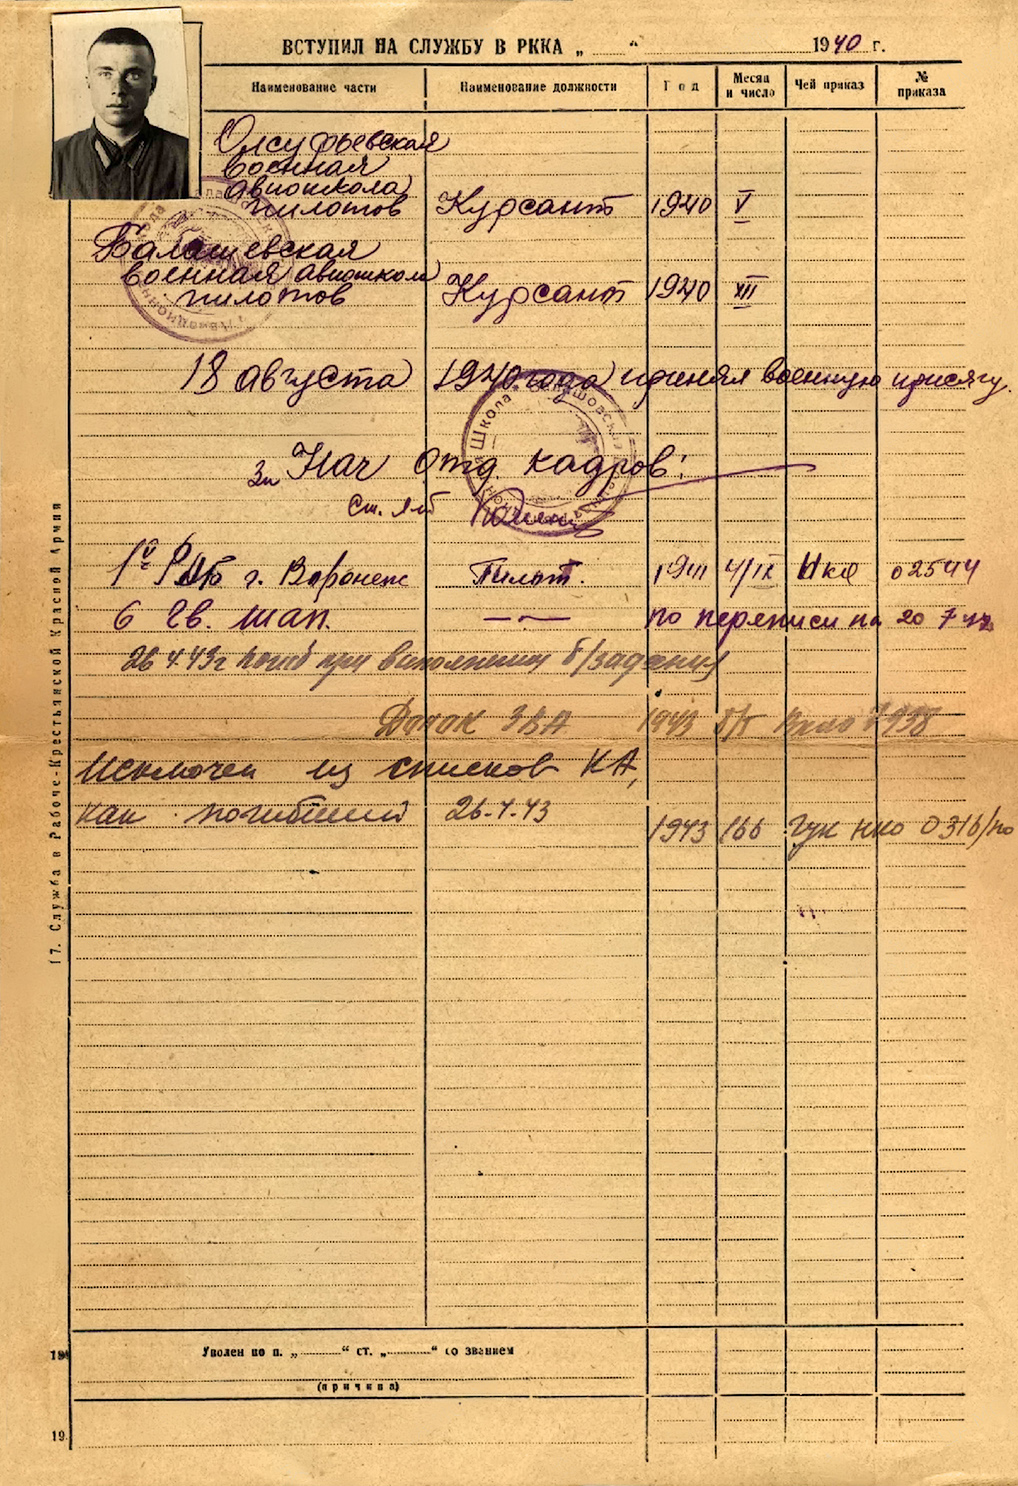 ВСТУПИЛ НА СЛУЖБУ В РККА „ “ 1940 г.
Наименование части Наименование должности Год Месяц и число Чей приказ № приказа
Олсуфьевская
военная
авиашкола
пилотов Курсант 1940 V
Балашевская
военная авиашкола
пилотов Курсант 1940 XII
18 августа 1940 года принял военную присягу.
Зп Нач Отд. кадров:
ст. лт
г. Воронеж Пилот. 1941 4/IX НКО 02544
6 Гв. шап. —~— по переписи на 20 7 42
26 4.43г погиб при выполнении б/задания
3ВА 1943
Исключен из списков КА,
как погибший 26.4.43
1943 166 Гук нко 0316/по
17. Служба в Рабоче-Крестьянской Красной Армии
Уволен по п. „ “ ст. „ “ со званием
(причина)
19